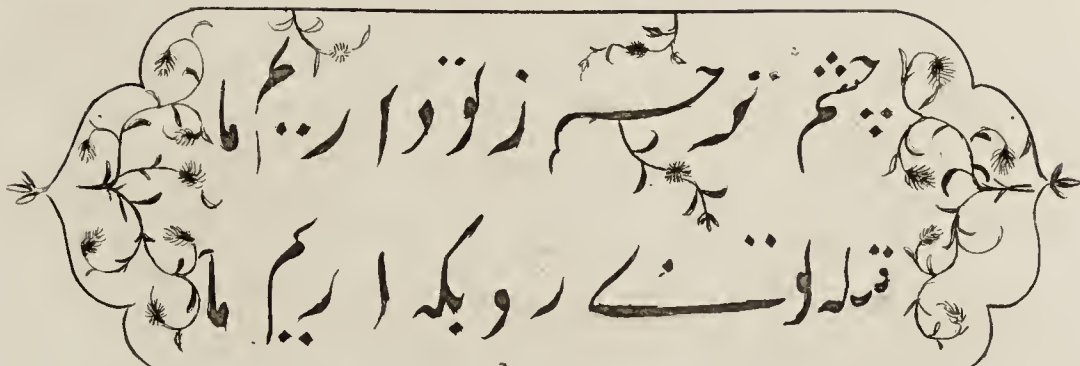 چشم ترحم ز تو داریم ما
قبله توئے رو بکه اریم ما